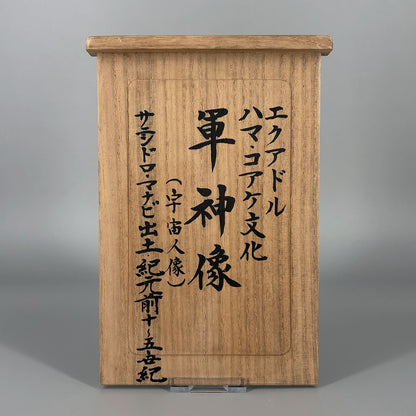 エクアドル
ハマ・コアケ文化
軍神像
(宇宙人像)
サランドロ・マナビ出土・紀元前十〜五世紀